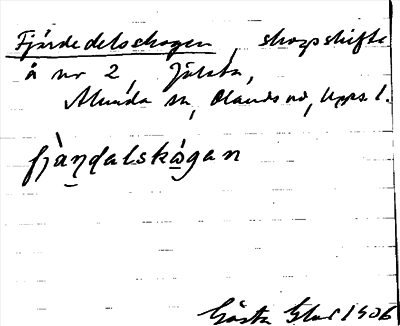 Fjärdedelsskogen, skogsskifte
å nr 2, Jälsta,
Alunda sn, Olands hd, Upps. l.
fjàṇdalskå̀gan
Gösta 1906